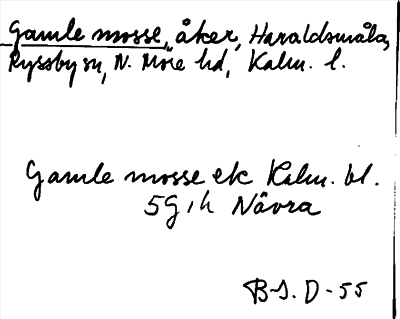 Gamle mosse, åker, Haraldsmåla,
Ryssby sn, N. Möre hd, Kalm. l.
Gamle mosse ek Kalm. bl.
5G, h Nåvra
B-S. D-55